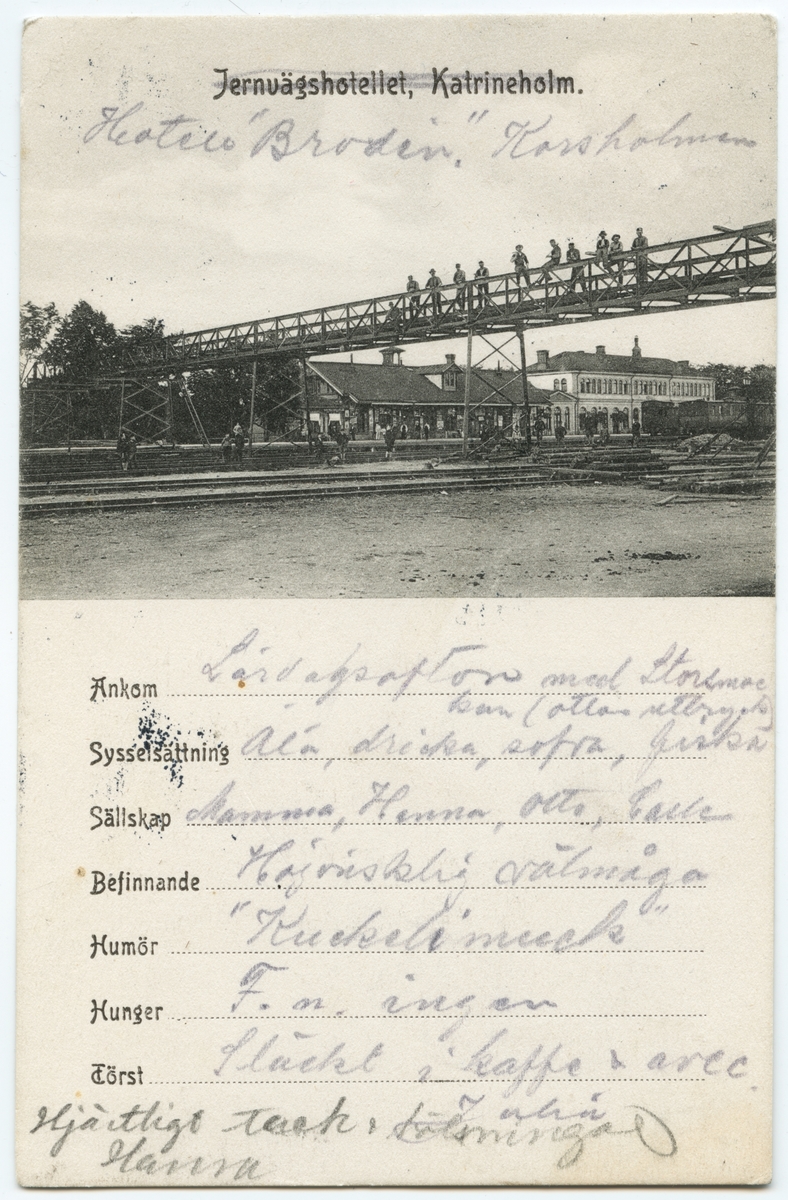 Jernvägshotellet, Katrineholm.
Hotell "Brodin," Korsholmen
Ankom Lördagsafton med Storsmac
kan (ottos uttryck)
Sysselsättning Äta, dricka, sofva, fiska
Sällskap Mamma, Hanna, Otto, Calle
Befinnande välmåga
Humör "Kuckelimuck"
Hunger F. n. ingen
Törst Släckt i kaffe & avec.
Julia
Hjärtligt tack & hälsningar
Hanna